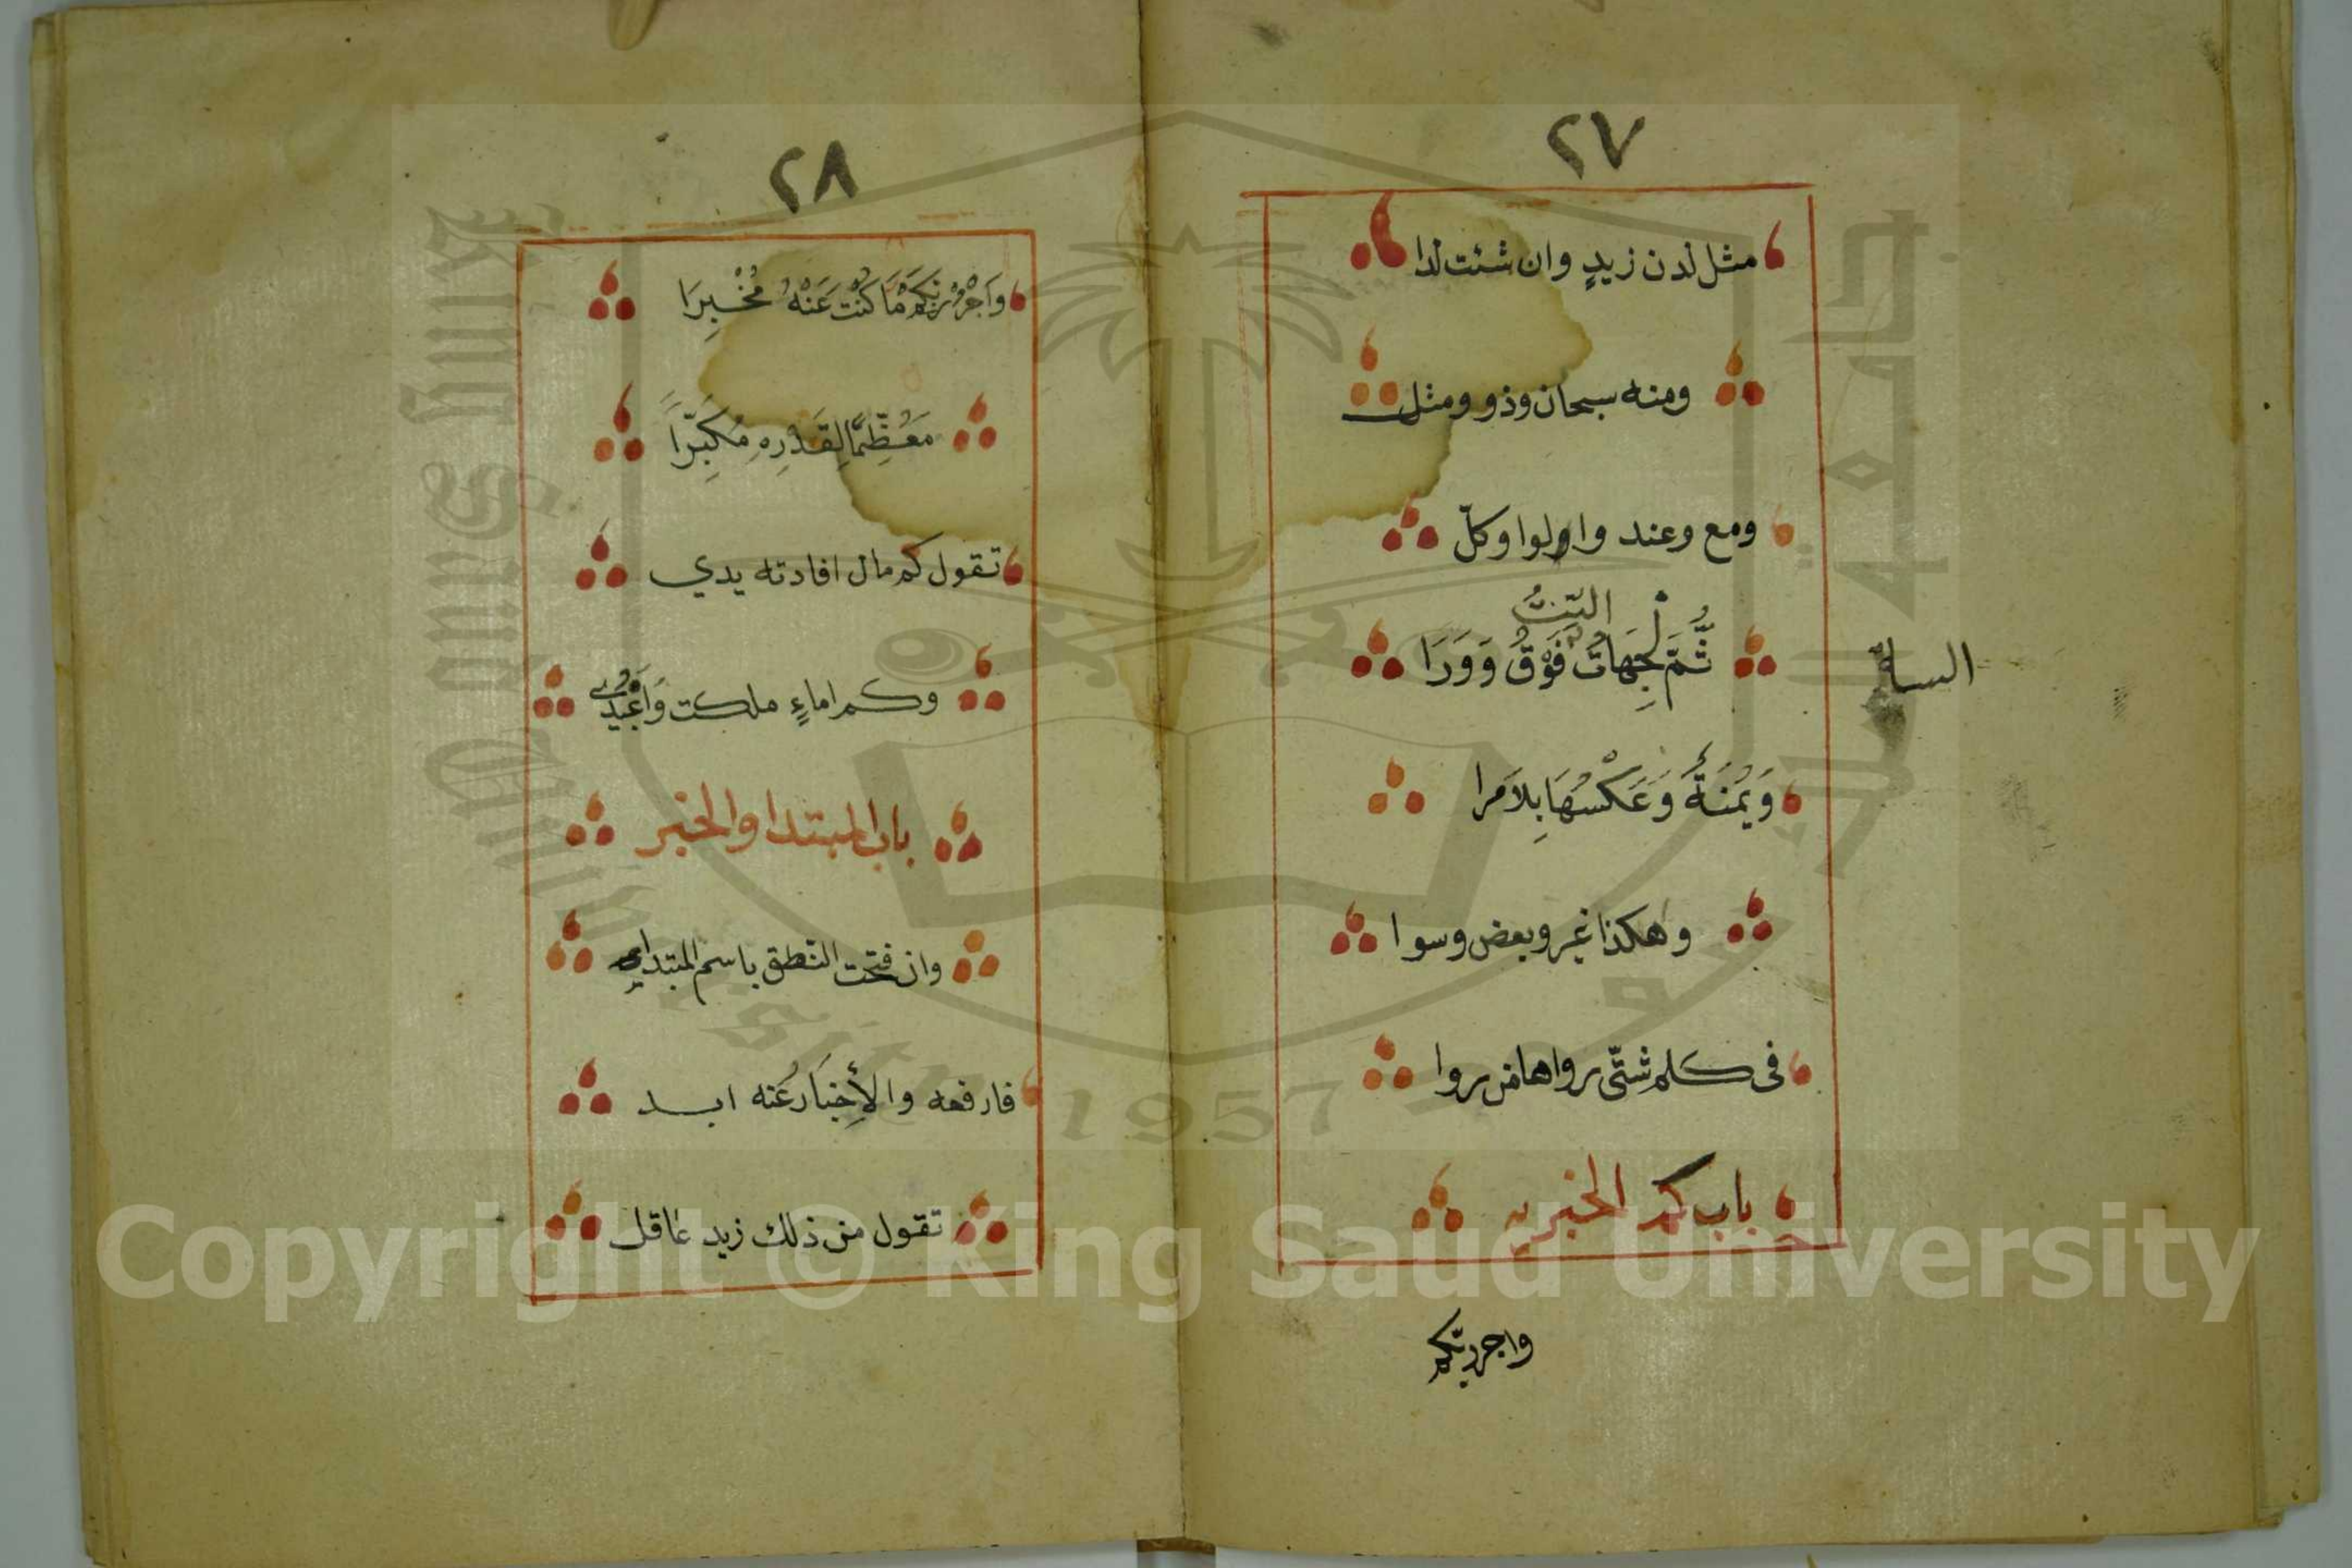 ٢٧
مثل لدن زيدٍ وان شئت لدا
ومنه سبحان وذو ومثل
ومع وعند واولوا وكلّ
الستُّ
ثُمَّ لْجِهَاتُ فَوْقُ وَوَرَا
وَيُمْنَةٌ وَعَكْسُهَا بِلاَ مَرا
وهكذا غير وبعض وسوا
فى كلم شتّى رواها من روا
باب كم الخبريه
واجرربكم
٢٨
وَاجْرُرْ بِكَمْ مَا كُنْتَ عَنْهُ مُخْبِرَا
مَعُظِّمًا لِقَدْرِهِ مُكَبِّرَاً
تقول كم مال افادته يدي
وكم اماءٍ ملكت وَاَعْبُدِي
باب المبتدا والخبر
وان فتحت النطق باسم المبتداي
فارفعه والأِخبَارُ عَنه ابد
تقول من ذلك زيد عاقل
جامعة الملك سعود
King Saud University
1957
Copyright © King Saud University